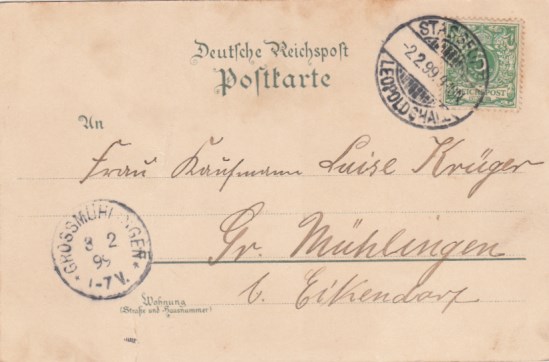 Deutsche Reichspost
Postkarte
STASSFURT
-2.2.99.
LEOPOLDSHALL
REICHSPOST
An
Frau Kaufmann Luise Krüger
Gr. Mühlingen
b. Eikendorf
GROSSMÜHLINGEN
3 2
99
1-7V.
Wohnung
(Straße und Hausnummer)